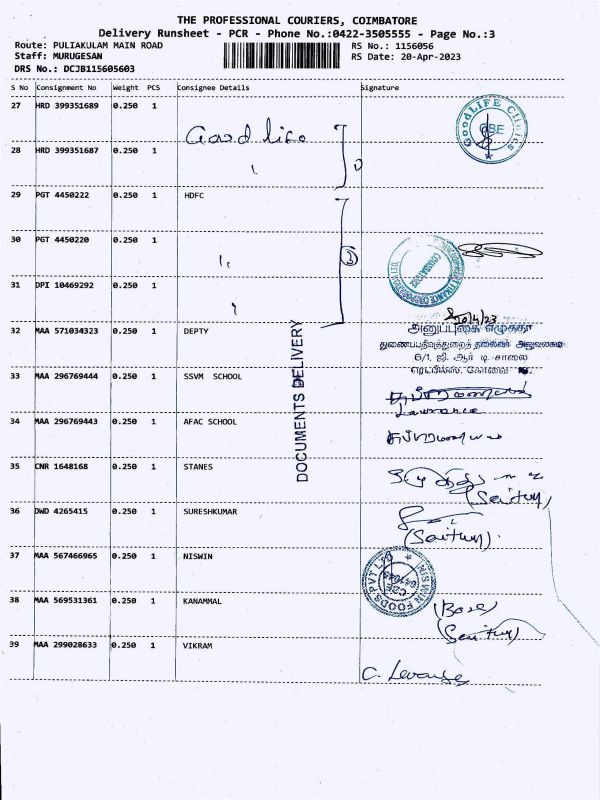 THE PROFESSIONAL COURIERS, COIMBATORE
Delivery Runsheet - PCR - Phone No.:0422-3505555 - Page No.:3
Route: PULIAKULAM MAIN ROAD RS No.: 1156056
Staff: MURUGESAN RS Date: 20-Apr-2023
DRS No.: DCJB115605603
S No Consignment No Weight PCS Consignee Details Signature
27 HRD 399351689 0.250 1
GoodLIFE Clinics
CBE
Good life
28 HRD 399351687 0.250 1
29 PGT 4450222 0.250 1 HDFC
30 PGT 4450220 0.250 1
COIMBATORE
31 DPI 10469292 0.250 1
20/4/23
32 MAA 571034323 0.250 1 DEPTY
துணைபபதிவுத்துறைத் தலைவர் அலுவலகம
6/1, ஜி. ஆர் டி சாலை
கோவை
DOCUMENTS DELIVERY
33 MAA 296769444 0.250 1 SSVM SCHOOL
Lawrance
34 MAA 296769443 0.250 1 AFAC SCHOOL
35 CNR 1648168 0.250 1 STANES
36 DWD 4265415 0.250 1 SURESHKUMAR
37 MAA 567466965 0.250 1 NISWIN
NISWIN FOODS PVT LTD
CBE
38 MAA 569531361 0.250 1 KANAMMAL
(Bose)
39 MAA 299028633 0.250 1 VIKRAM